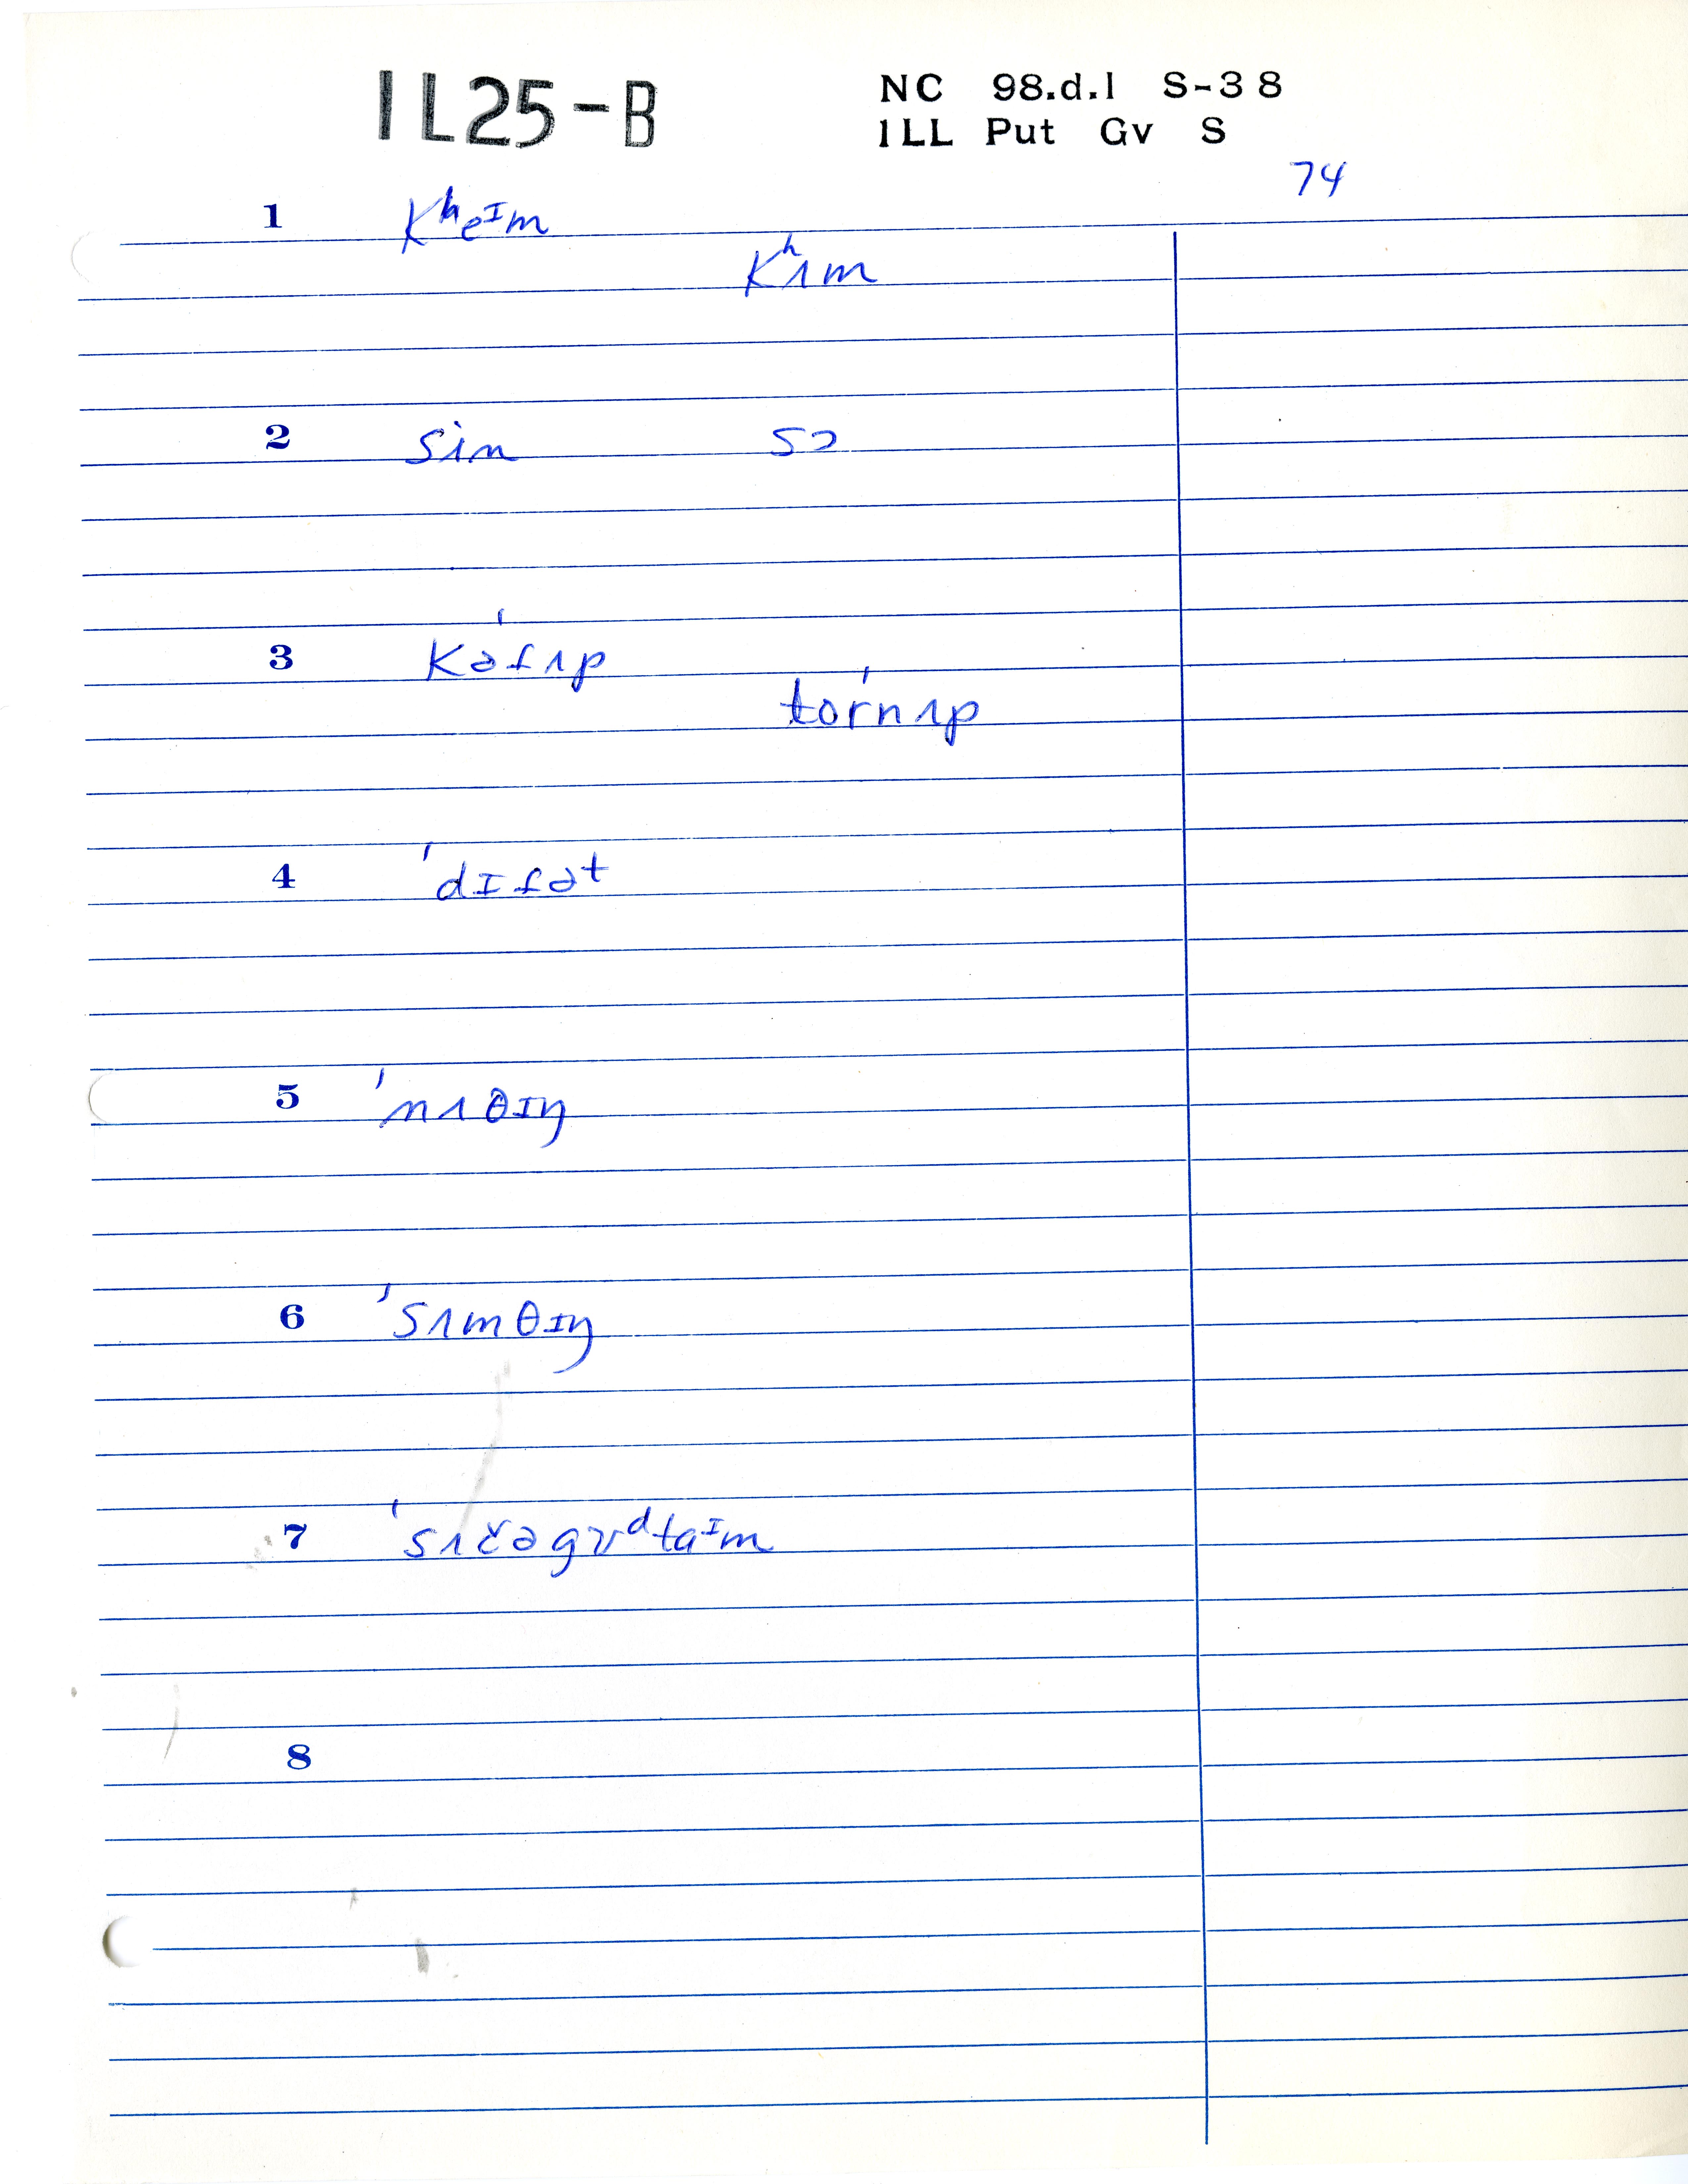 IL25-B
NC 98.d.1 S-38
ILL Put Gv S
74
1 Kʰeᴵm
Kʰʌm
2 sin sɔ
3 Kəf'ʌp
torn'ʌp
4 'dɪfət
5 'nʌθɪŋ
6 'sʌmθɪŋ
7 'sʌčəgʊᵈtaᴵm
8